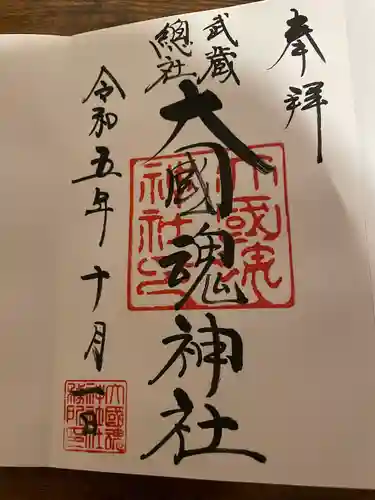 奉拝
武蔵
總社
大國魂神社
令和五年十月一日
大國魂
神社印
大國魂
神社社
務所印